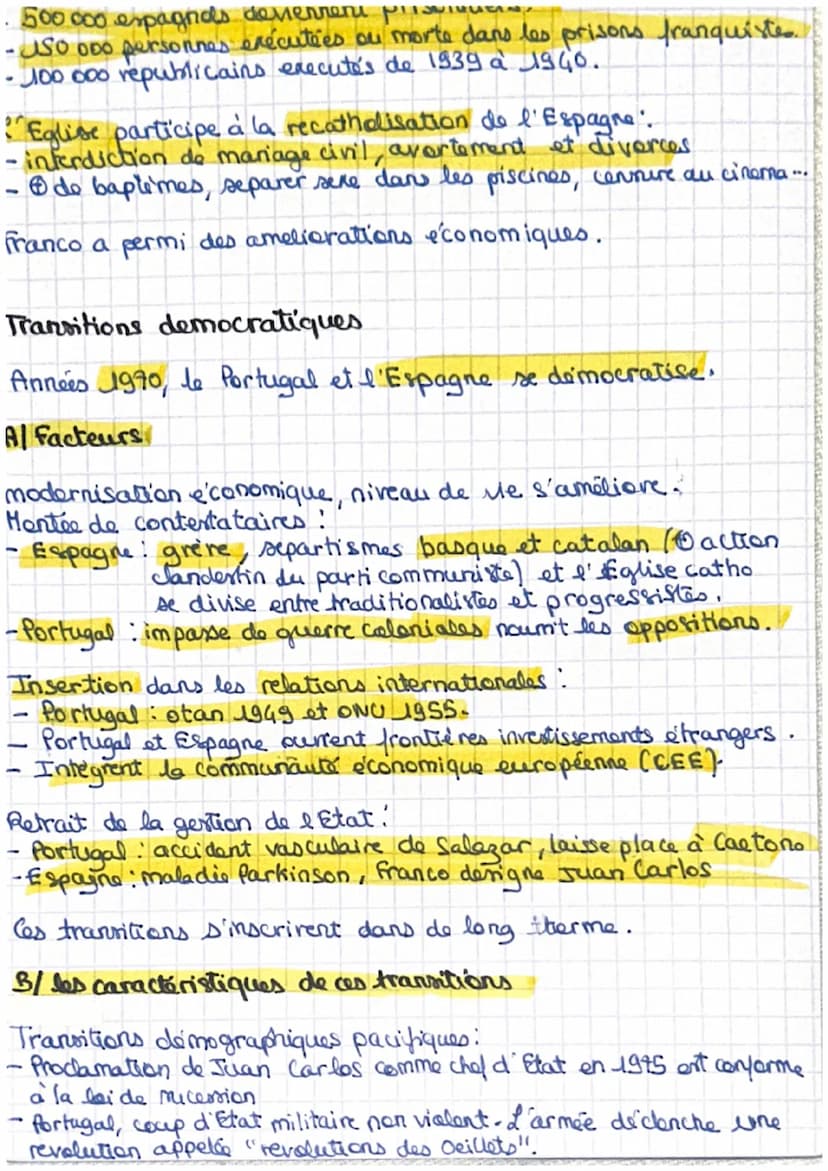 . 500 000 espagnols deviennent prisonniers.
- 150 000 personnes exécutées ou morte dans les prisons franquistes.
- 100 000 républicains executés de 1939 à 1940.
L'Eglise participe à la recatholisation de l'Espagne :
- interdiction de mariage civil, avortement et divorces
- ⊕ de baptêmes, separer sexe dans les piscines, censure au cinema...
Franco a permi des ameliorations économiques.
Transitions democratiques
Années 1970, le Portugal et l'Espagne se démocratise.
A/ Facteurs
modernisation économique, niveau de vie s'améliore.
Montée de contestataires :
- Espagne : grève, separtismes basque et catalan (⊕ action
clandestin du parti communiste) et l'Eglise catho
se divise entre traditionalistes et progressistes.
- Portugal : impasse de guerre coloniales nourrit les oppositions.
Insertion dans les relations internationales :
- Portugal : otan 1949 et ONU 1955.
- Portugal et Espagne ouvrent frontières investissements étrangers.
- Intègrent la communauté économique européenne (CEE).
Retrait de la gestion de l'Etat :
- Portugal : accident vasculaire de Salazar, laisse place à Caetono
- Espagne : maladie Parkinson, Franco désigne Juan Carlos
Ces transitions s'inscrirent dans de long therme.
B/ les caractéristiques de ces transitions
Transitions démographiques pacifiques :
- Proclamation de Juan Carlos comme chef d'Etat en 1975 est conforme
à la loi de succession
- Portugal, coup d'Etat militaire non violent. L'armée déclenche une
revolution appelée "revolutions des Oeillets".